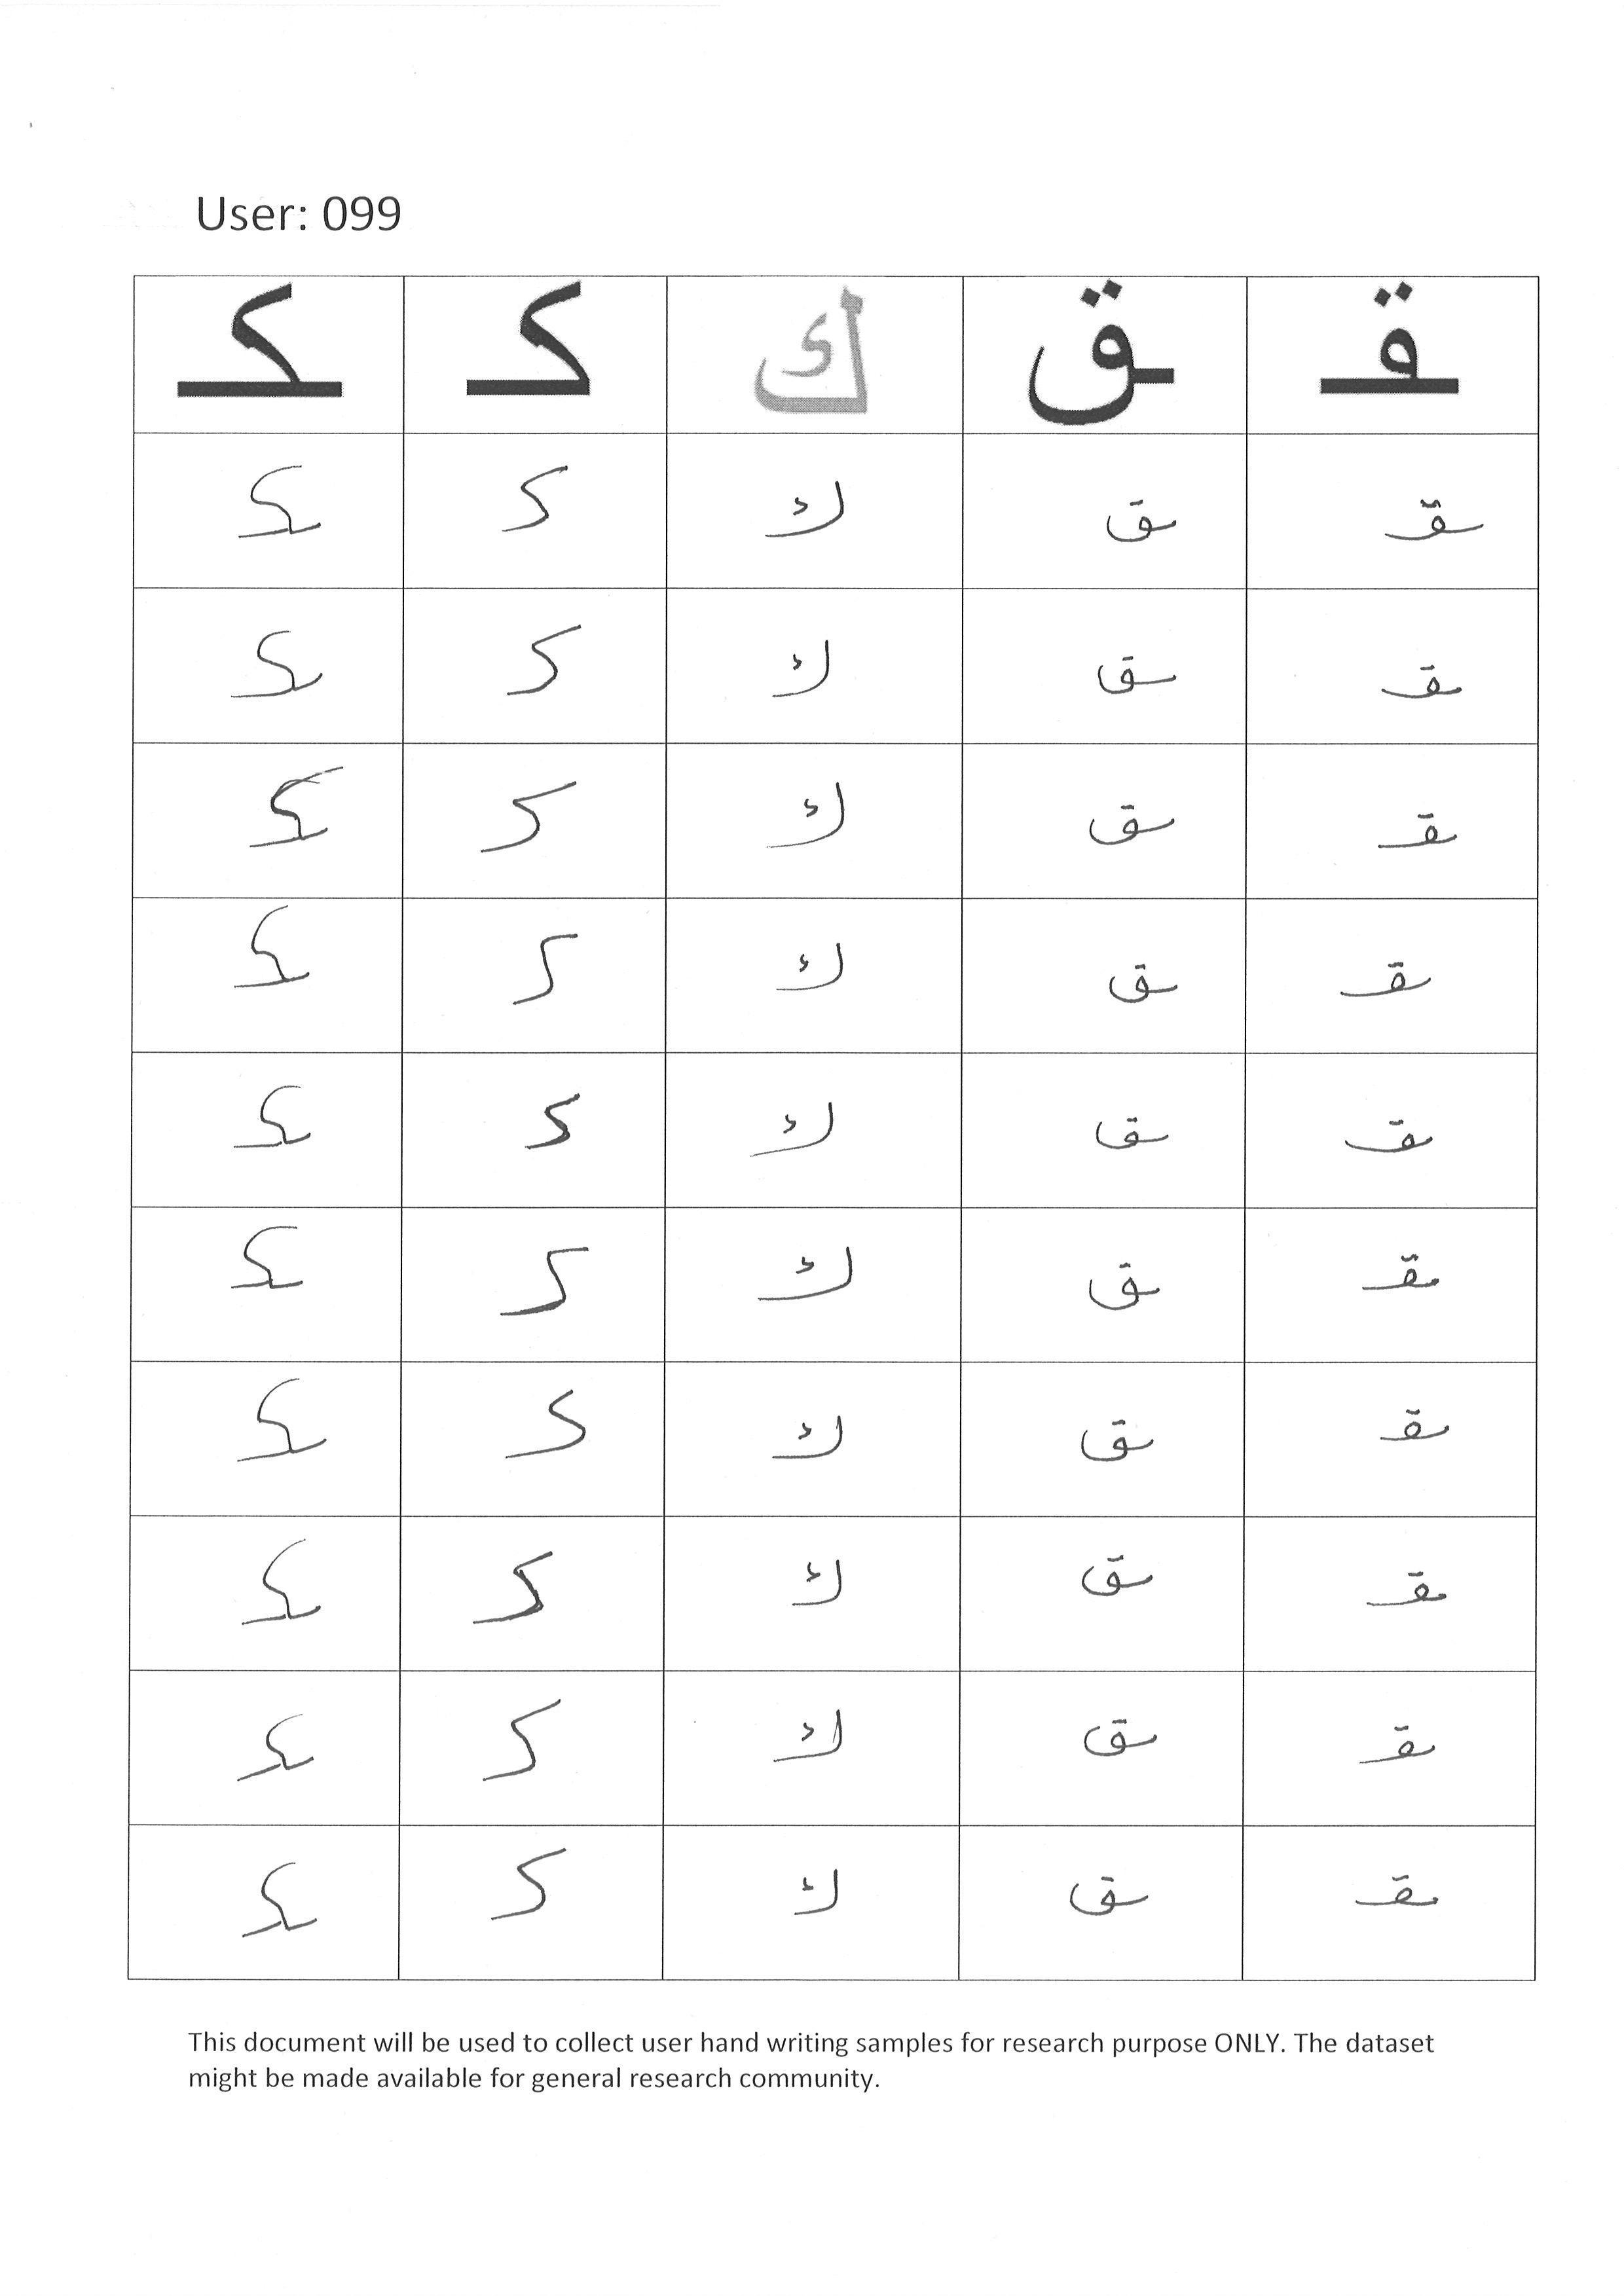 User: 099
ـكـ كـ ك ـق ـقـ
ـكـ كـ ك ـق ـقـ
ـكـ كـ ك ـق ـقـ
ـكـ كـ ك ـق ـقـ
ـكـ كـ ك ـق ـقـ
ـكـ كـ ك ـق ـقـ
ـكـ كـ ك ـق ـقـ
ـكـ كـ ك ـق ـقـ
ـكـ كـ ك ـق ـقـ
ـكـ كـ ك ـق ـقـ
ـكـ كـ ك ـق ـقـ
This document will be used to collect user hand writing samples for research purpose ONLY. The dataset
might be made available for general research community.